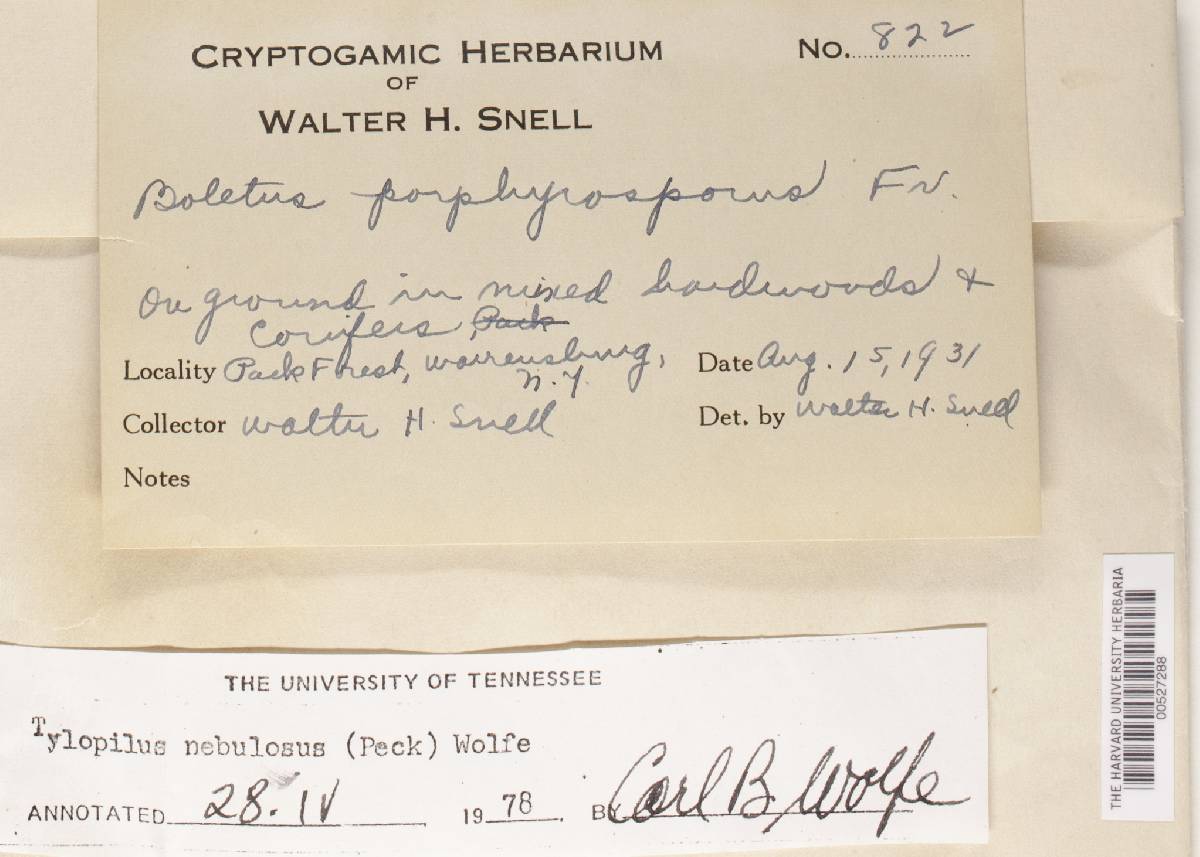 CRYPTOGAMIC HERBARIUM No. 822
OF
WALTER H. SNELL
Boletus porphyrosporus Fr.
On ground in mixed hardwoods &
conifers, Pack
Locality Pack Forest, Warrensburg, Date Aug. 15, 1931
N.Y.
Collector Walter H. Snell Det. by Walter H. Snell
Notes
THE HARVARD UNIVERSITY HERBARIA
00527288
THE UNIVERSITY OF TENNESSEE
Tylopilus nebulosus (Peck) Wolfe
ANNOTATED 28.IV 1978. BY Carl B. Wolfe